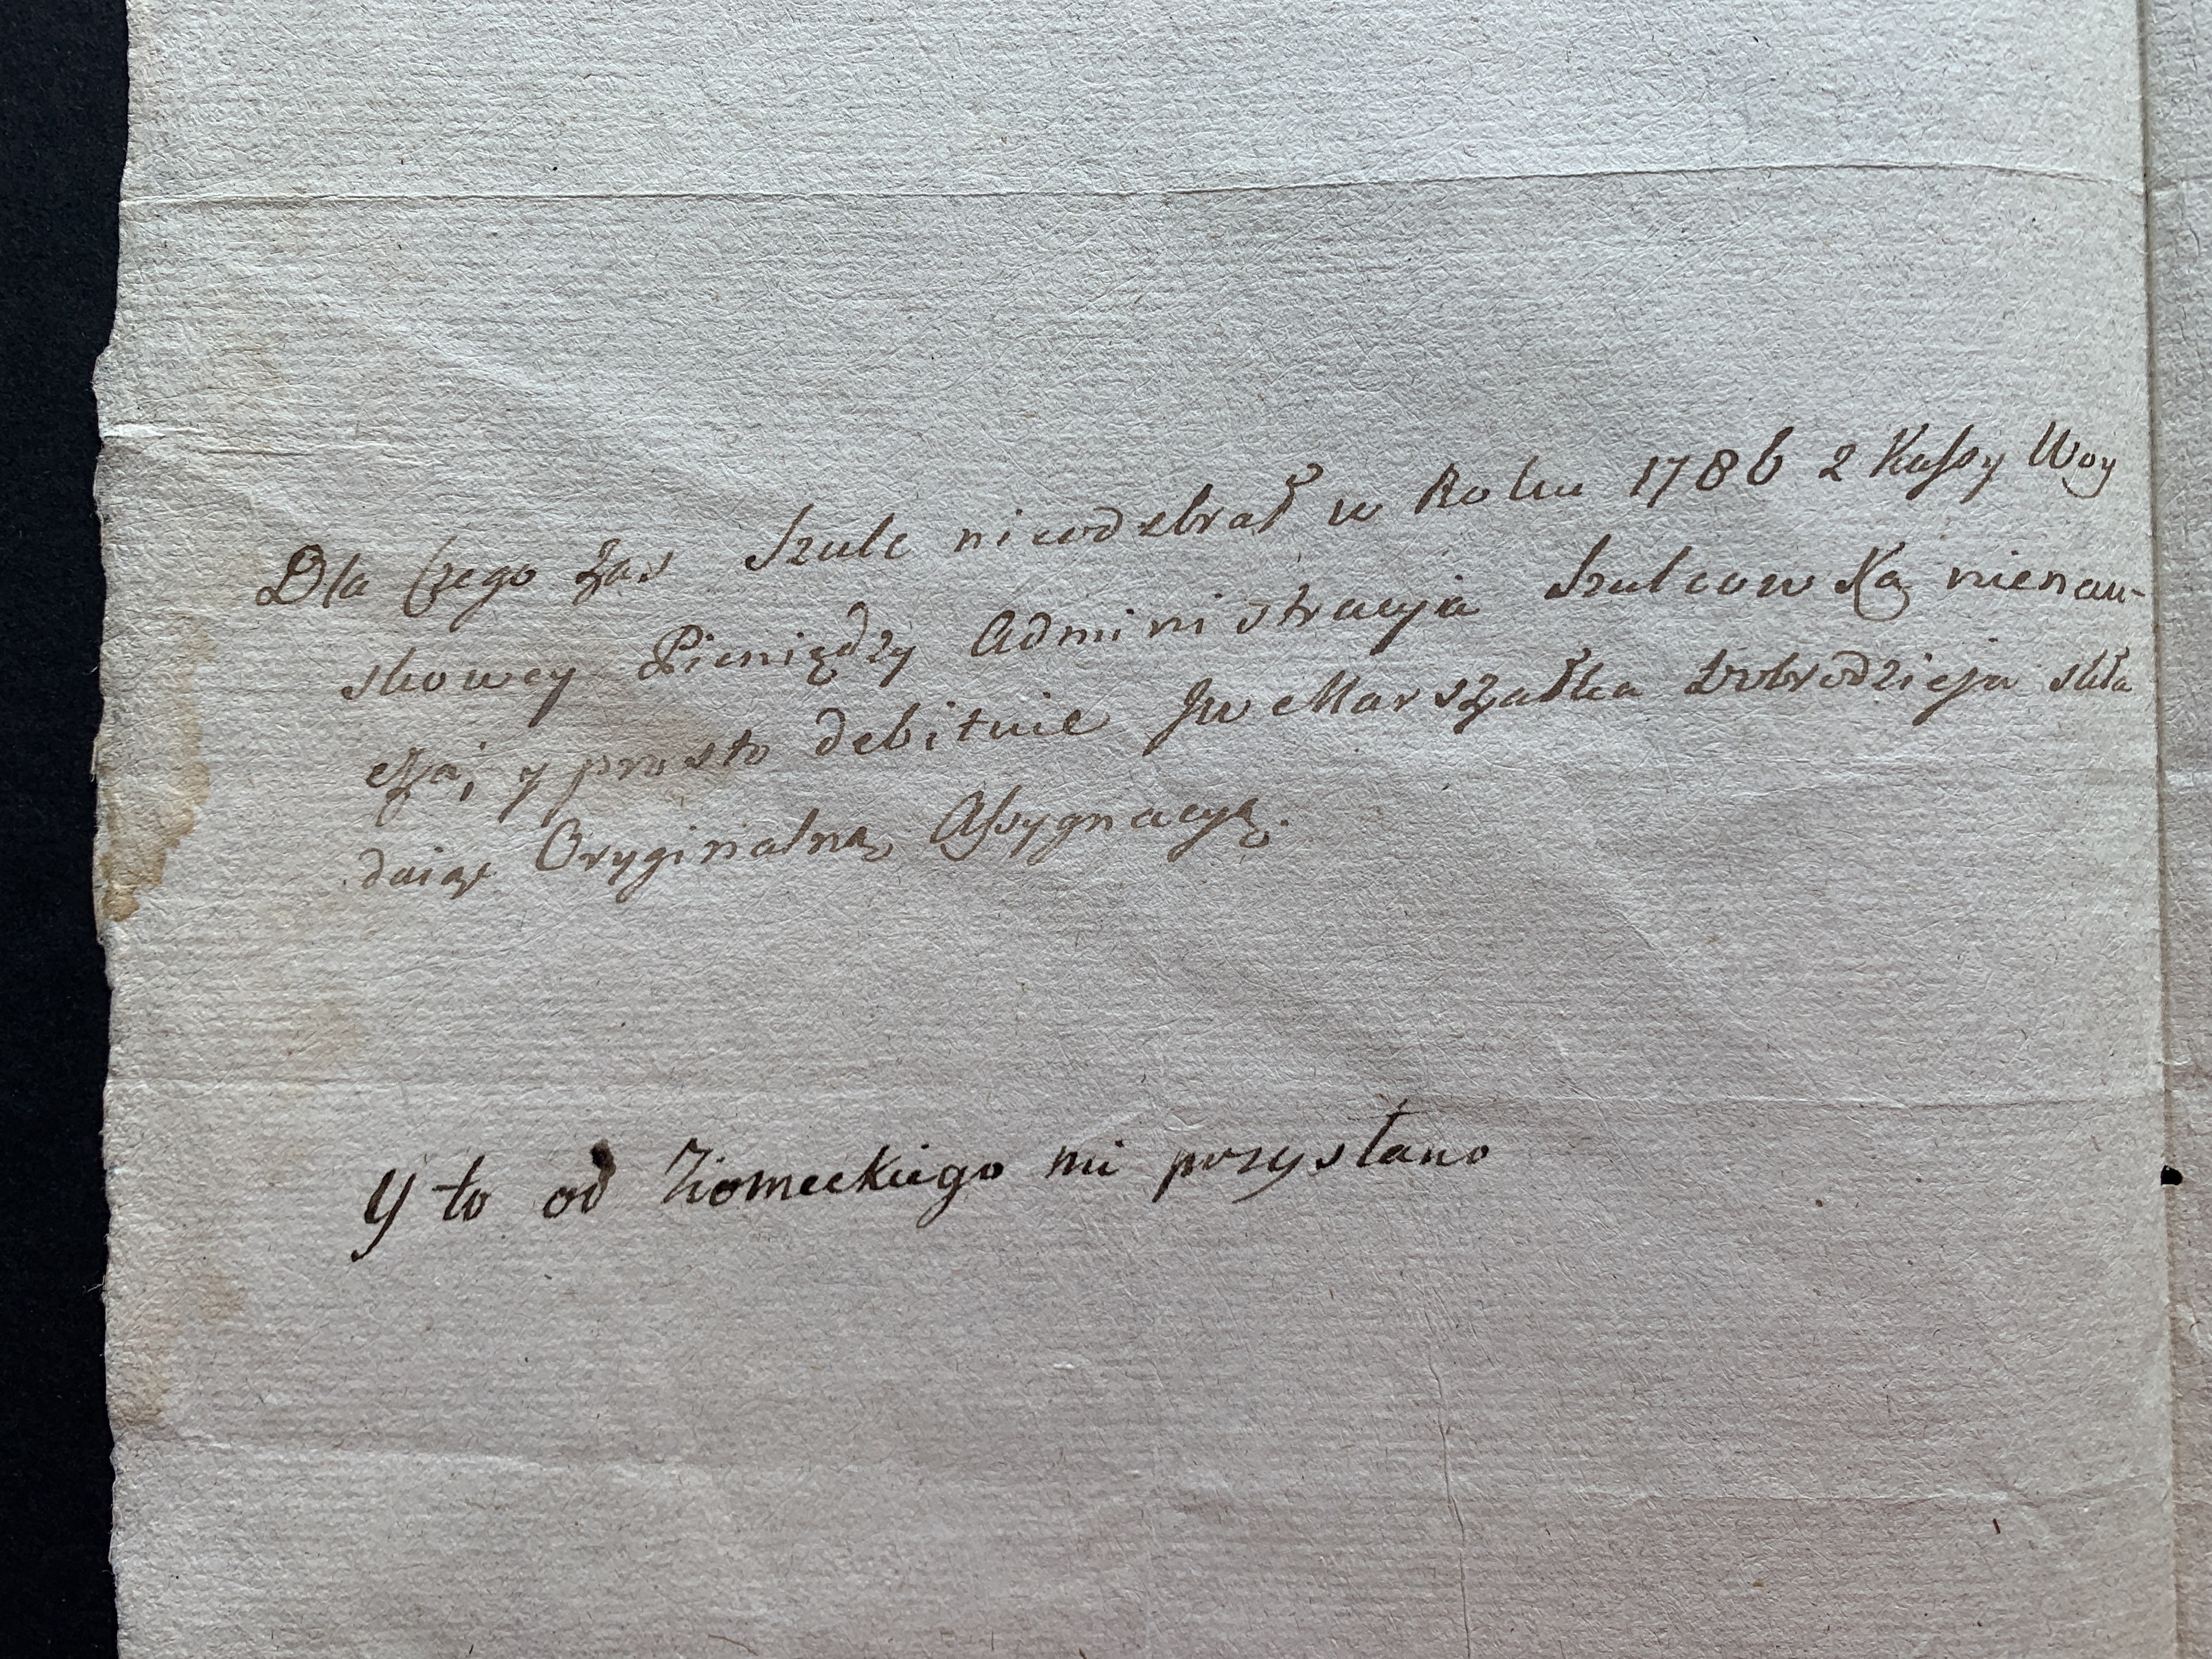 Dla Czego zas Szulc nieodebrał w Roku 1786 z Kassy Woy
skowey Pieniędzy Administracyja Szulcowską nienau-
czją, y prosto debitnie Jw Marszałka Dobrodzieja skła
daiąc Oryginalną Assygnacyą.
Y to od Ziomeckiego mi przysłano